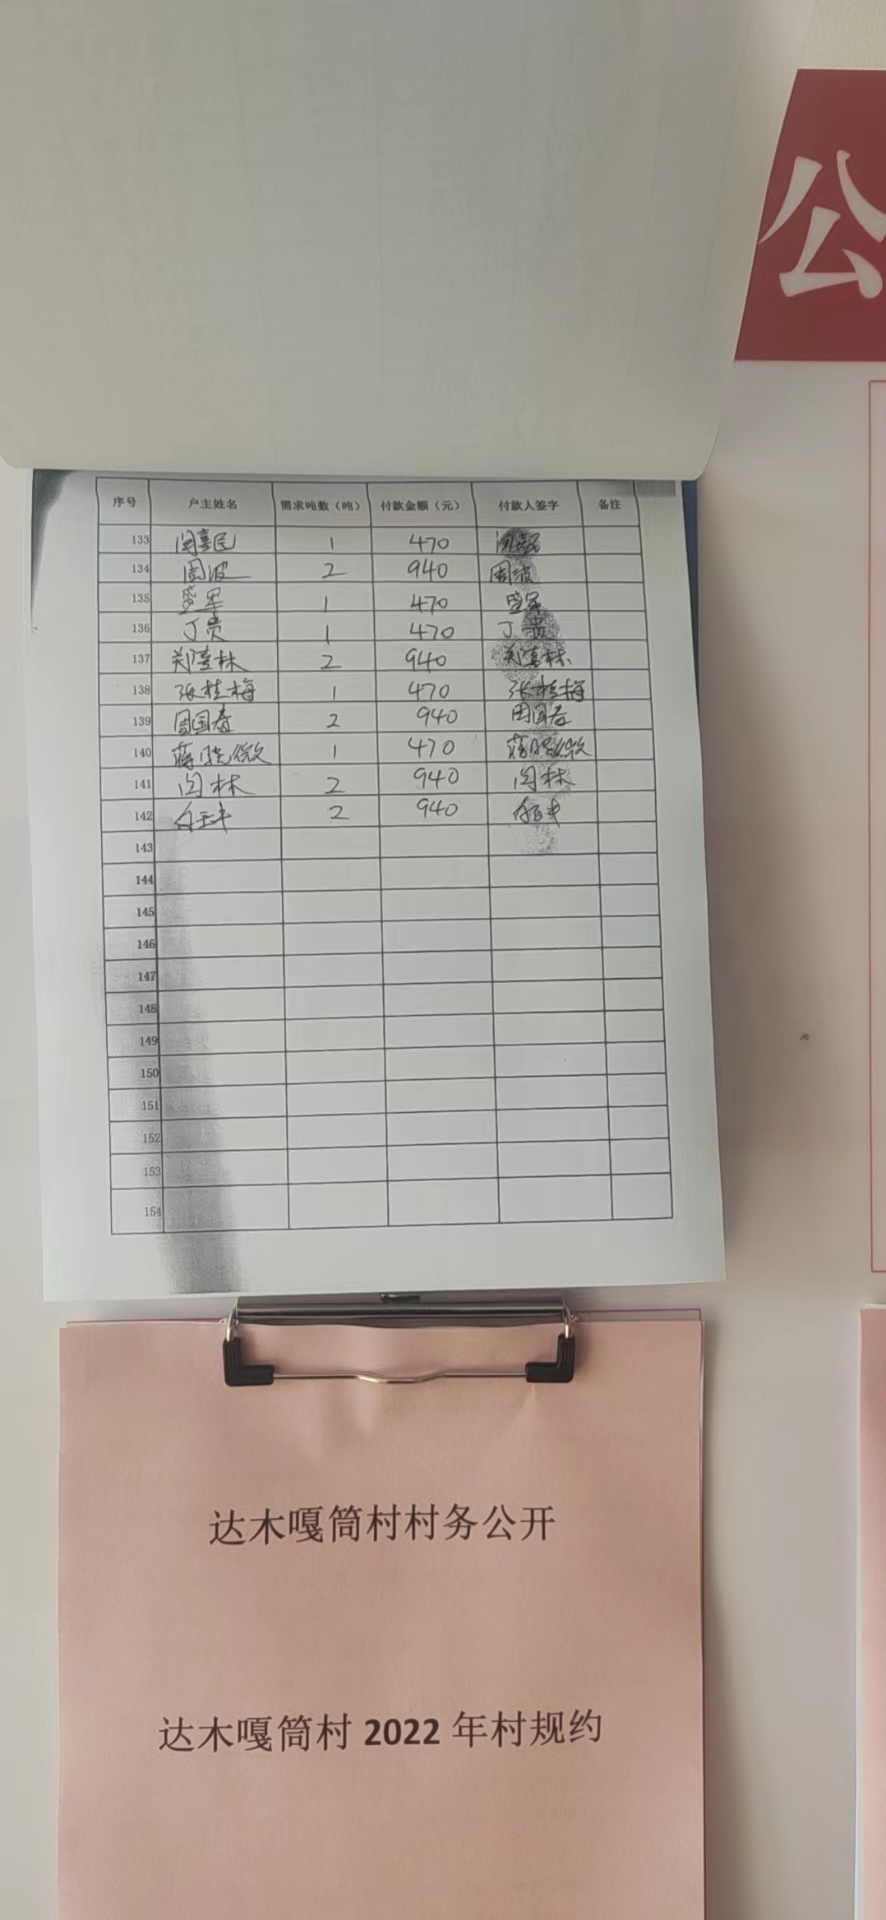 公
序号 户主姓名 需求吨数（吨） 付款金额（元） 付款人签字 备注
133 闫喜民 1 470 闫喜民
134 周波 2 940 周波
135 盛军 1 470 盛军
136 丁贵 1 470 丁贵
137 郑喜林 2 940 郑喜林
138 张桂梅 1 470 张桂梅
139 周国春 2 940 周国春
140 蒋晓微 1 470 蒋晓微
141 闫林 2 940 闫林
142 2 940
143
144
145
146
147
148
149
150
151
152
153
154
达木嘎筒村村务公开
达木嘎筒村 2022 年村规约